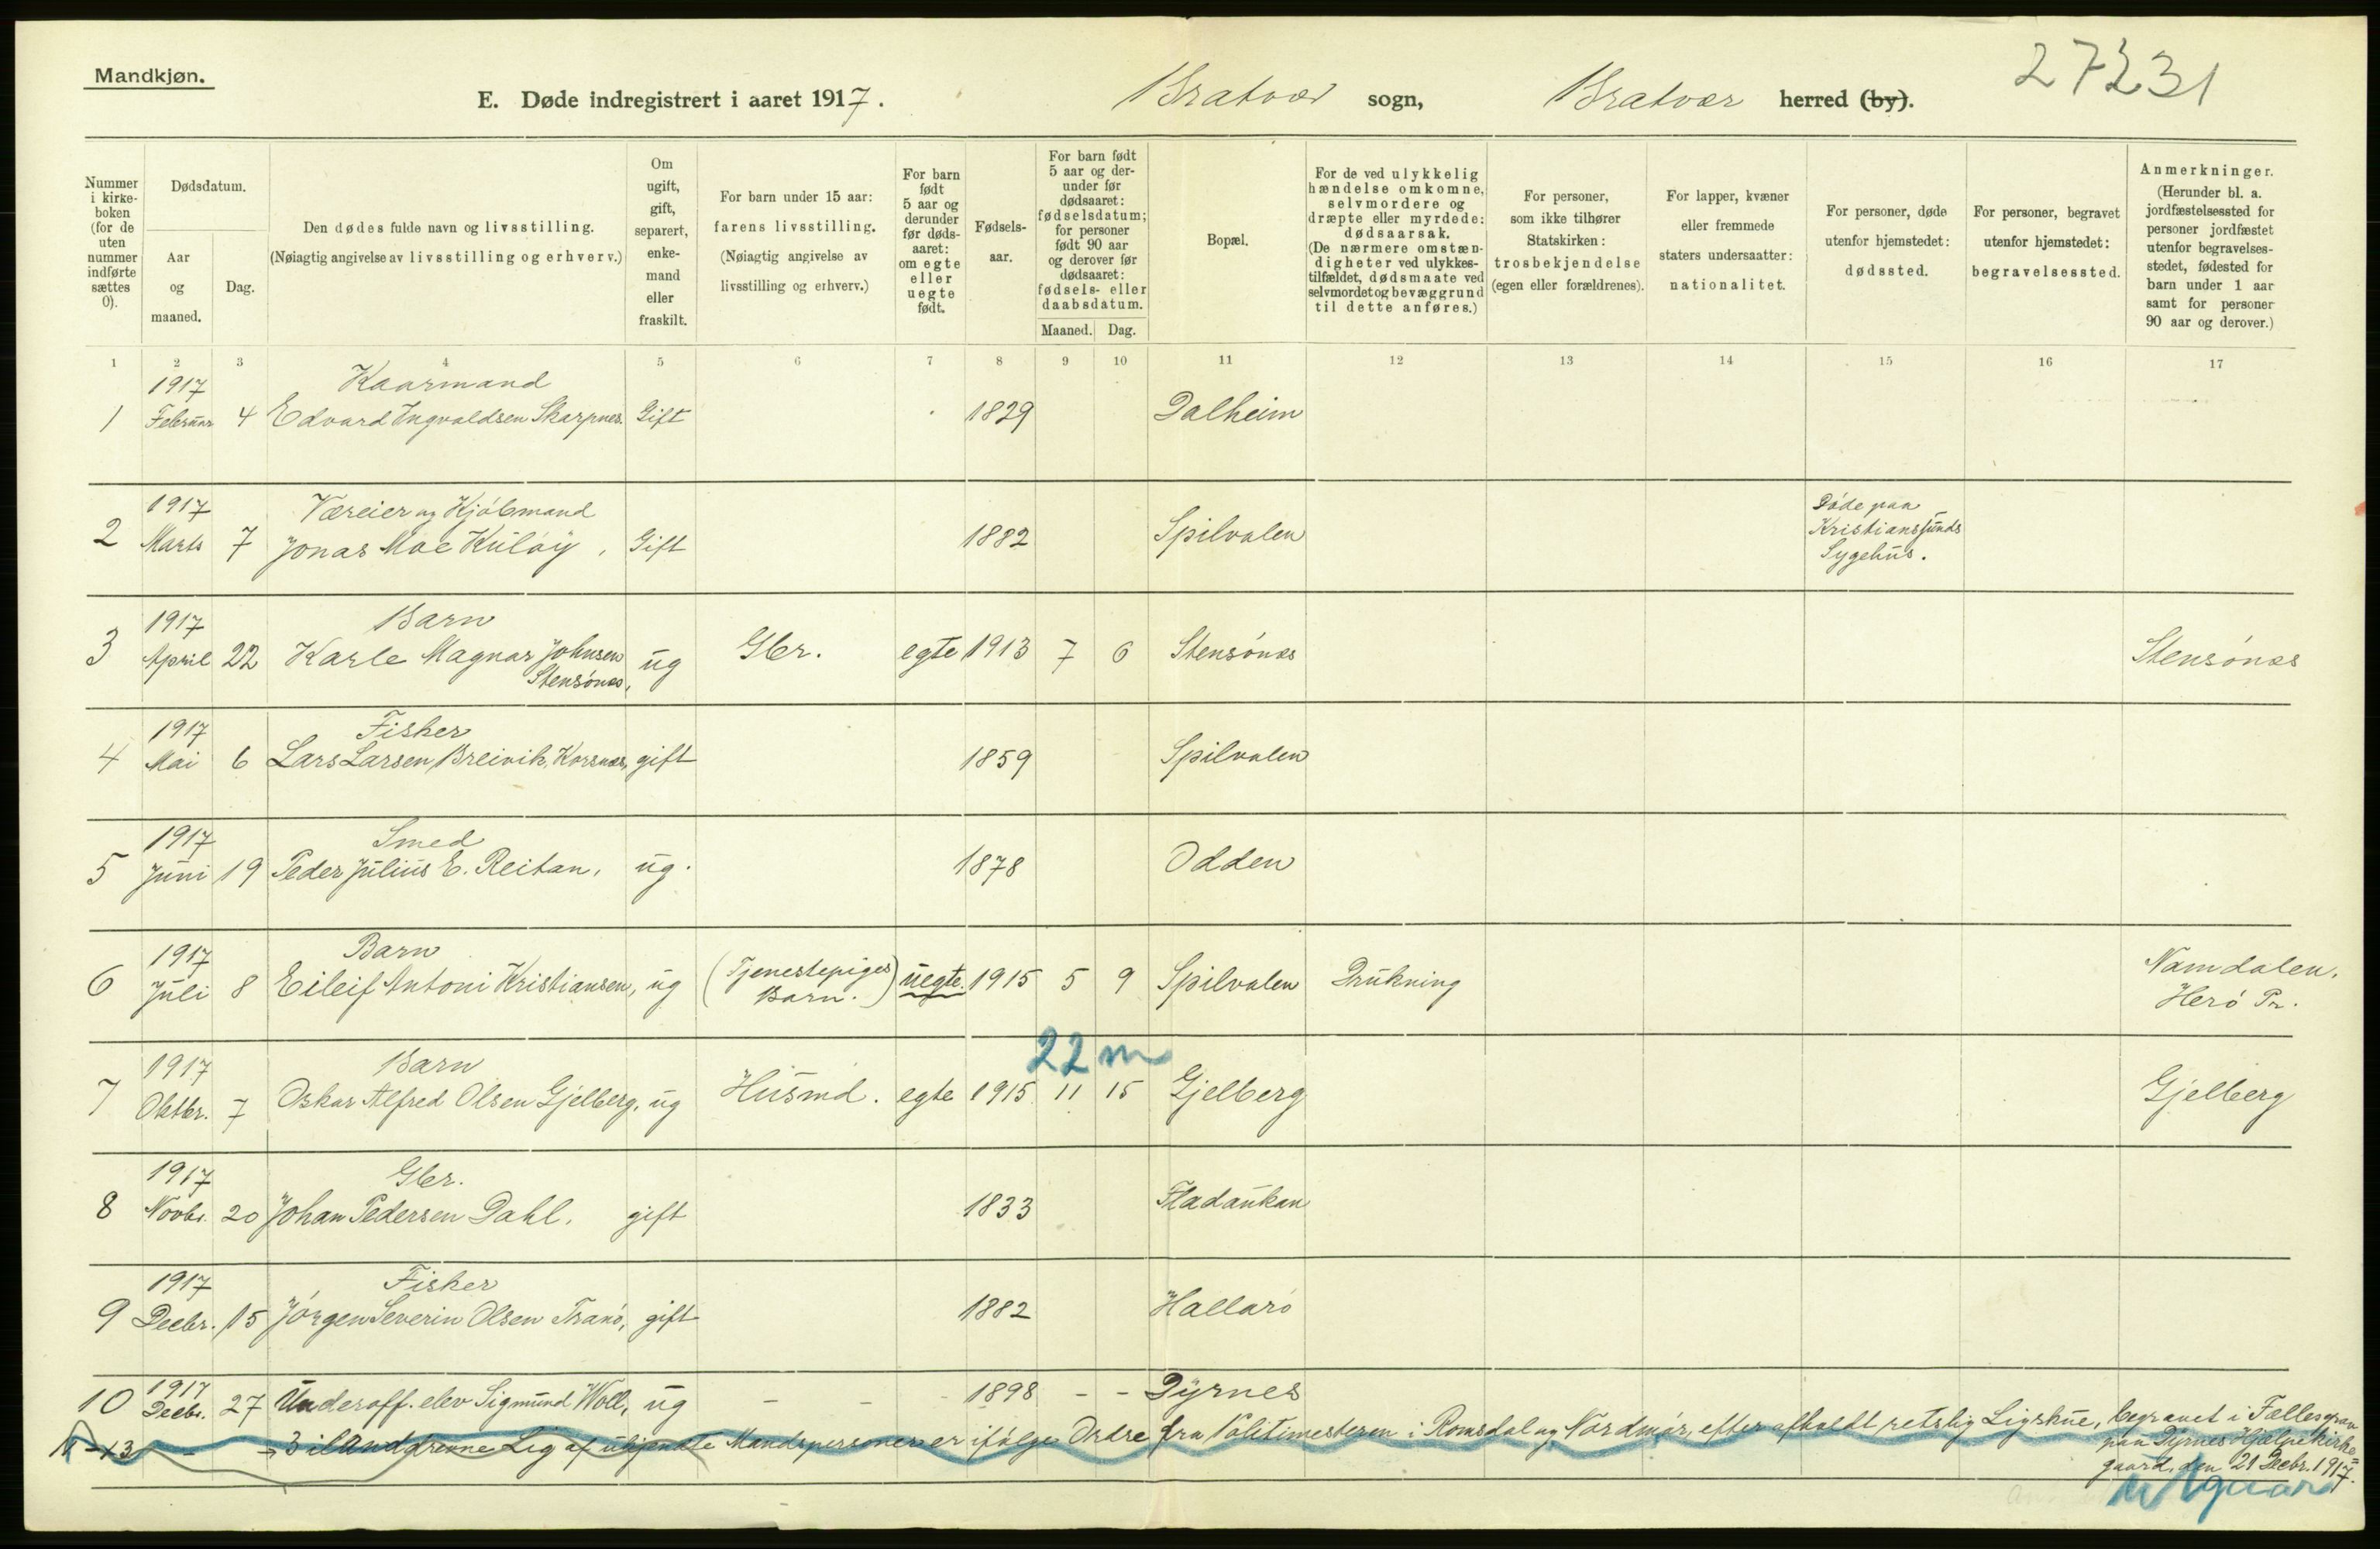 Mandkjøn.
E. Døde indregistrert i aaret 1917. Bratvær sogn, Bratvær herred (by).
27231
Nummer i kirkeboken (for de uten nummer indførte sættes 0).
Dødsdatum.
Aar og maaned.
Dag.
Den dødes fulde navn og livsstilling.
(Nøiagtig angivelse av livsstilling og erhverv.)
Om ugift, gift, separert, enkemand eller fraskilt.
For barn under 15 aar: farens livsstilling.
(Nøiagtig angivelse av livsstilling og erhverv.)
For barn født 5 aar og derunder før dødsaaret: om egte eller uegte født.
Fødselsaar.
For barn født 5 aar og derunder før dødsaaret: fødselsdatum; for personer født 90 aar og derover før dødsaaret: fødsels- eller daabsdatum.
Maaned. Dag.
Bopæl.
For de ved ulykkelig hændelse omkomne, selvmordere og dræpte eller myrdede: dødsaarsak.
(De nærmere omstændigheter ved ulykkestilfældet, dødsmaate ved selvmordet og bevæggrund til dette anføres.)
For personer, som ikke tilhører Statskirken: trosbekjendelse (egen eller forældrenes).
For lapper, kvæner eller fremmede staters undersaatter: nationalitet.
For personer, døde utenfor hjemstedet: dødssted.
For personer, begravet utenfor hjemstedet: begravelsessted.
Anmerkninger.
(Herunder bl. a. jordfæstelsessted for personer jordfæstet utenfor begravelsesstedet, fødested for barn under 1 aar samt for personer 90 aar og derover.)
1 2 3 4 5 6 7 8 9 10 11 12 13 14 15 16 17
1917 Kaarmand
1 Februar 4 Edvard Ingvaldsen Skarpnes. Gift 1829 Dalheim
1917 Væreier og Kjøbmand
2 Marts 7 Jonas Moe Kuløy, Gift 1882 Spilvalen
Døde paa
Kristianssunds
Sygehus.
1917 Barn
3 April 22 Karle Magnar Johnsen ug Gbr. egte 1913 7 6 Stensónes Stensónes
Stensónes,
1917 Fisker
4 Mai 6 Lars Larsen Breivik, Korsnæs, gift 1859 Spilvalen
1917 Smed
5 Juni 19 Peder Julius E. Reitan, ug. 1878 Odden
1917 Barn
6 Juli 8 Eileif Antoni Kristiansen, ug (Tjenestepiges Barn.) uegte. 1915 5 9 Spilvalen Drukning
Namdalen,
Heró Pr.
22 m
1917 Barn
7 Oktbr. 7 Oskar Alfred Olsen Gjelberg, ug Husmd. egte 1915 11 15 Gjelberg Gjelberg
1917 Gbr.
8 Novbr. 20 Johan Pedersen Dahl, gift 1833 Fladaukan
1917 Fisker
9 Decbr. 15 Jórgen Severin Olsen Tranó, gift 1882 Halларó
1917
10 Decbr. 27 Underoff. elev Sigmund Woll, ug - - - 1898 - - Dyrnes
11-13 - - 3 ilanddrevne Lig af ukjendte Mandspersoner er ifølge Ordre fra Politimesteren i Romsdal og Nordmór, efter afholdt retslig Ligskue, begravet i Fællesgrav
paa Dyrnes Hjælpekirke=
gaard, den 21 Decbr. 1917.